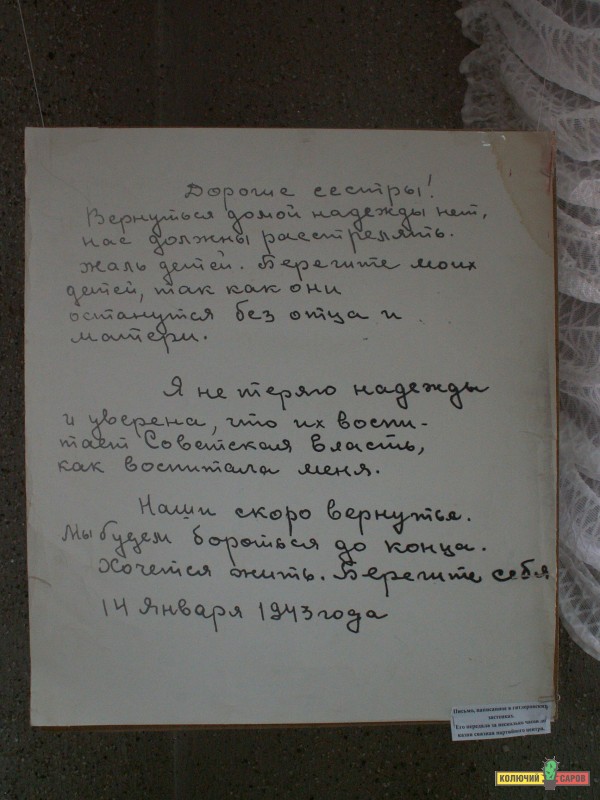 Дорогие сестры!
Вернуться домой надежды нет,
нас должны расстрелять.
Жаль детей. Берегите моих
детей, так как они
останутся без отца и
матери.
Я не теряю надежды
и уверена, что их воспи-
тает Советская власть,
как воспитала меня.
Наши скоро вернутся.
Мы будем бороться до конца.
Хочется жить. Берегите себя
14 Января 1943 года
Письмо, написанное в гитлеровских
застенках.
Его передала за несколько часов до
казни связная партийного центра.
КОЛЮЧИЙ САРОВ